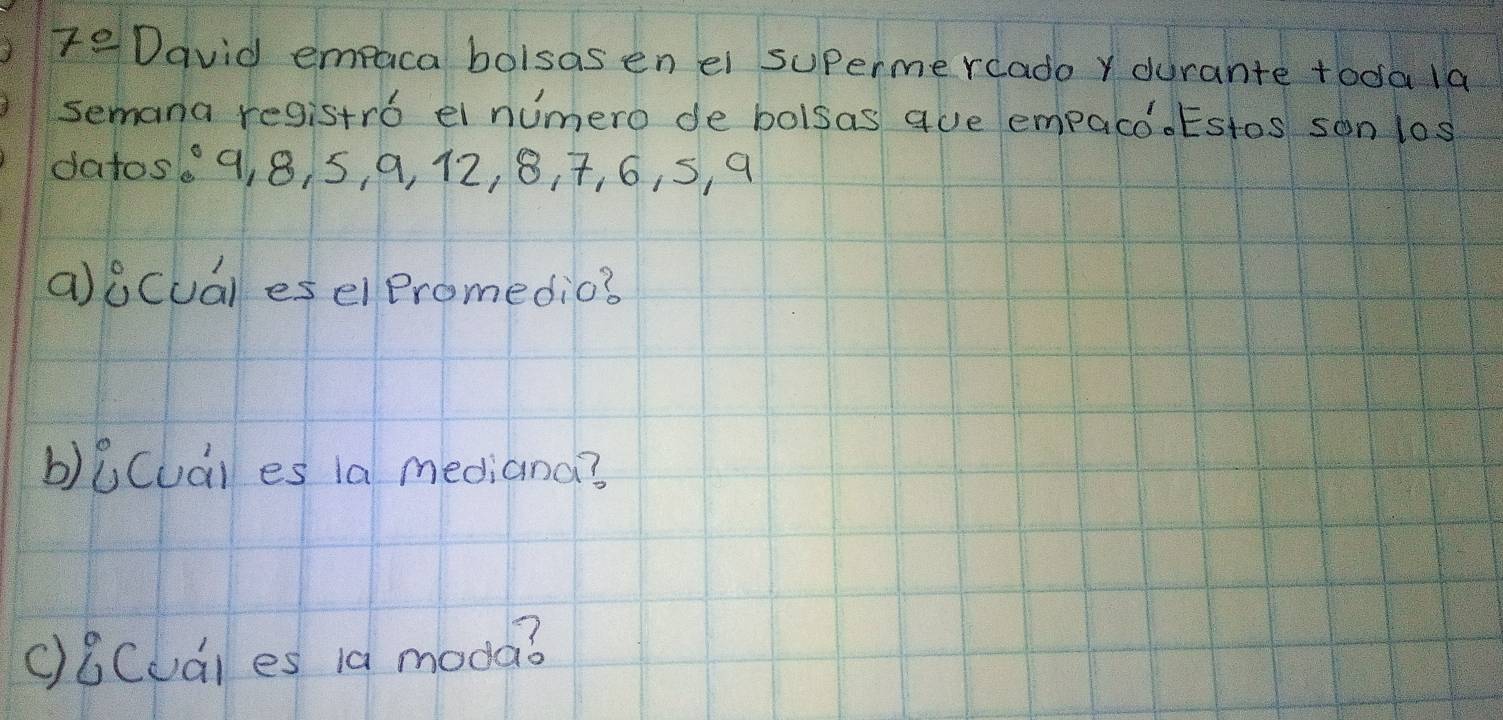 7º David empaca bolsas en el supermercado y durante toda la
semana registró el número de bolsas que empacó. Estos son los
datos: 9, 8, 5, 9, 12, 8, 7, 6, 5, 9
a) ¿Cuál es el Promedio?
b) ¿Cuál es la mediana?
c) ¿Cuál es la moda?